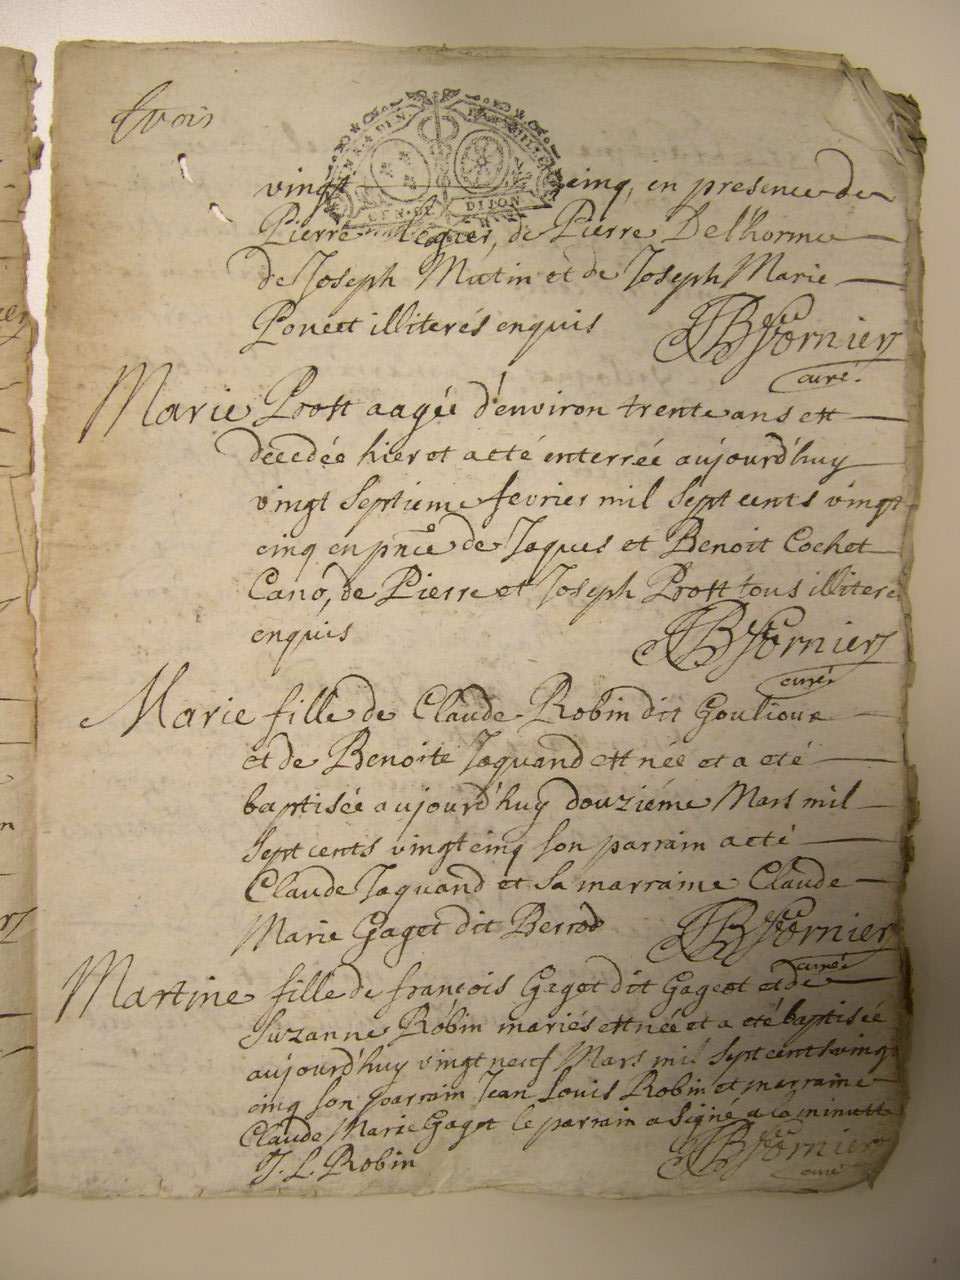 trois
GEN. DE DIJON
vingt cinq, en presence de
Pierre de Pierre Delhorme
de Joseph Mutin et de Joseph Marie
Ponect illiterés enquis JB Fornier
curé
Marie Prost aagée d'environ trente ans est
décedée hier et a eté enterrée aujourd'huy
vingt septieme fevrier mil sept cents vingt
cinq en pnce de Jaques et Benoit Cochet
Cano, de Pierre et Joseph Prost tous illiteré
enquis JB Fornier
curé
Marie fille de Claude Robin dit Goulioux
et de Benoite Jaquand est née et a eté
baptisée aujourd'huy douziéme Mars mil
sept cents vingt cinq son parrain a eté
Claude Jaquand et sa marraine Claude
Marie Gaget dit Berrod JB Fornier
curé
Martine fille de françois Gaget dit Gageot et de
Suzanne Robin mariés est née et a eté baptisée
aujourd'huy vingt neuf Mars mil sept cents vingt
cinq son parrain Jean Louis Robin et marraine
Claude Marie Gaget le parrain a signé a la minutte
J. L. Robin JB Fornier
curé